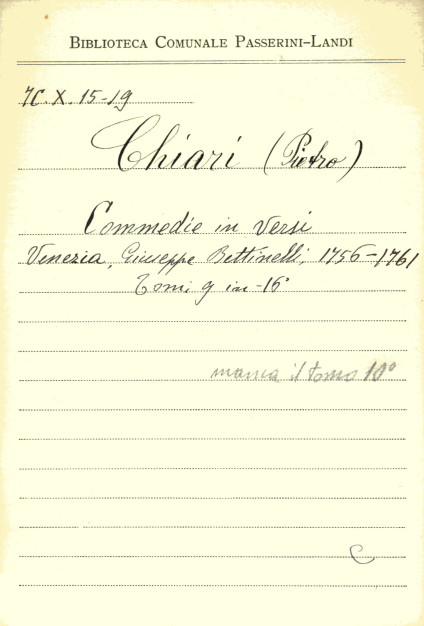 BIBLIOTECA COMUNALE PASSERINI-LANDI
7C. X. 15-19
Chiari (Pietro)
Commedie in versi
Venezia, Giuseppe Bettinelli, 1756-1761
Tomi 9 in-16°
manca il tomo 10°
C